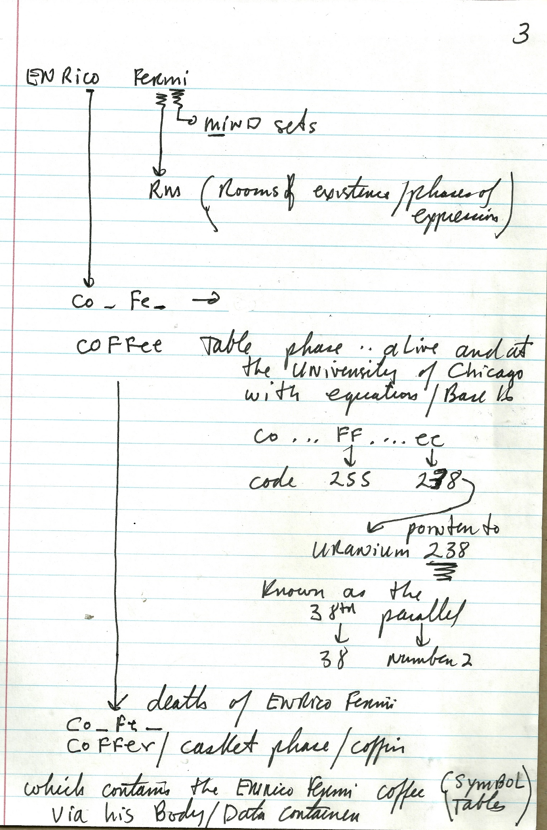 3
ENRico Fermi
mIND sets
Rms (Rooms of existence / phases of
expression)
Co _ Fe _ →
COFFee Table phase .. alive and at
the UNIVERSITY of Chicago
with equation / Base 16
Co ... FF .... ee
code 255 238
pointer to
URANIUM 238
Known as the
38th parallel
38 Number 2
death of ENRico Fermi
Co _ Fe _
COFFer / casket phase / coffin
which contains the ENRico Fermi coffee (SYMBOL
Tables)
via his Body / Data container